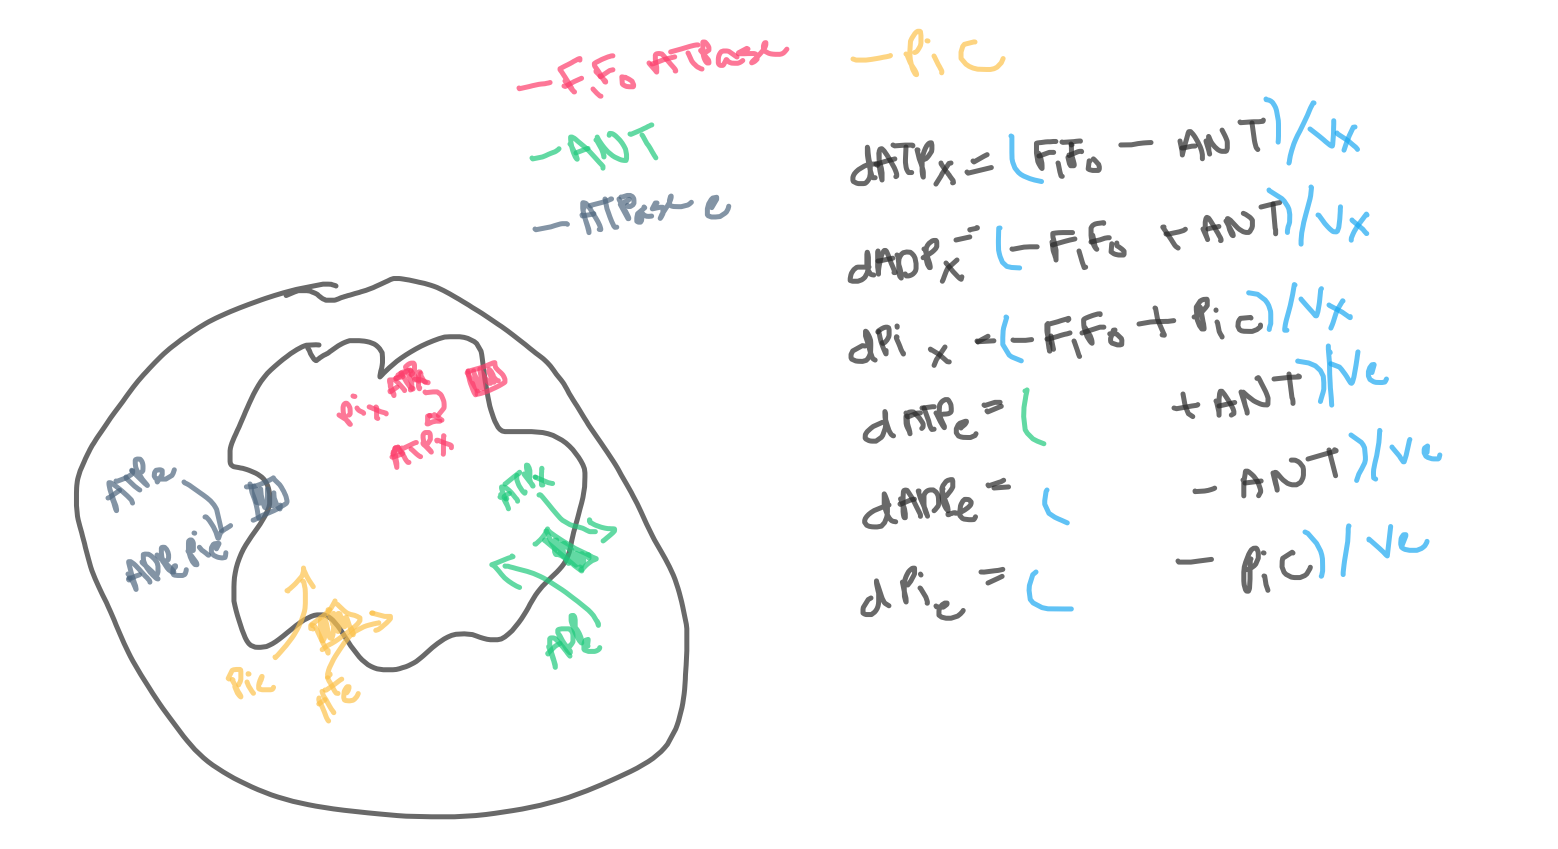 - F1F0 ATPase
- ANT
- ATPase e
- Pic
dATPx = (F1F0 - ANT)/Vx
dADPx = (-F1F0 + ANT)/Vx
dPi x = (-F1F0 + Pic)/Vx
dATPe = ( + ANT)/Ve
dADPe = ( - ANT)/Ve
dPie = ( - PiC)/Ve
Pix
ATPx
ATPe
ADPe Pie
ATPx
ADPe
Pie